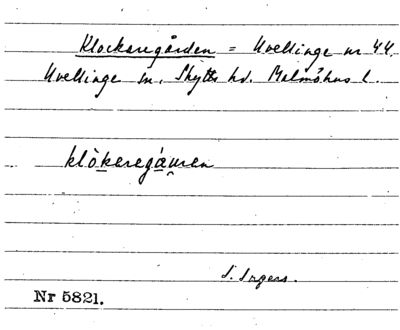 Klockaregården = Uvellinge nr 44.
Uvellinge sn. Skytts hd. Malmöhus l.
klòkeregáu̯ren
S. Ingers.
Nr 5821.